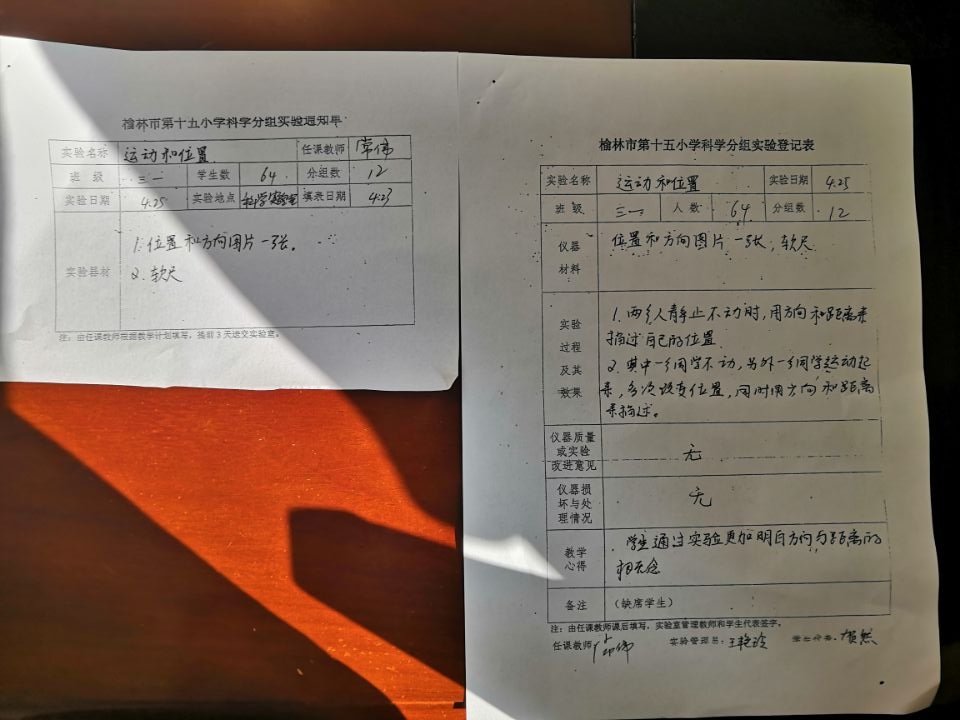 榆林市第十五小学科学分组实验通知单
实验名称 运动和位置 任课教师 常伟
班 级 三一 学生数 64 分组数 12
实验日期 4.25 实验地点 科学实验室 填表日期 4.23
实验器材
1. 位置和方向图片一张。
2. 软尺
注：由任课教师根据教学计划填写，提前3天送交实验室。
榆林市第十五小学科学分组实验登记表
实验名称 运动和位置 实验日期 4.25
班 级 三一 人 数 64 分组数 12
仪器
材料
位置和方向图片一张，软尺
实验
过程
及其
效果
1. 两个人静止不动时，用方向和距离来
描述自己的位置.
2. 其中一个同学不动，另外一个同学运动起
来，多次改变位置，同时用方向和距离
来描述。
仪器质量
或实验
改进意见
无
仪器损
坏与处
理情况
无
教学
心得
学生通过实验更加明白方向与距离的
概念
备注 （缺席学生）
注：由任课教师课后填写，实验室管理教师和学生代表签字。
任课教师 常伟 实验管理员：王艳玲 学生代表：贺然